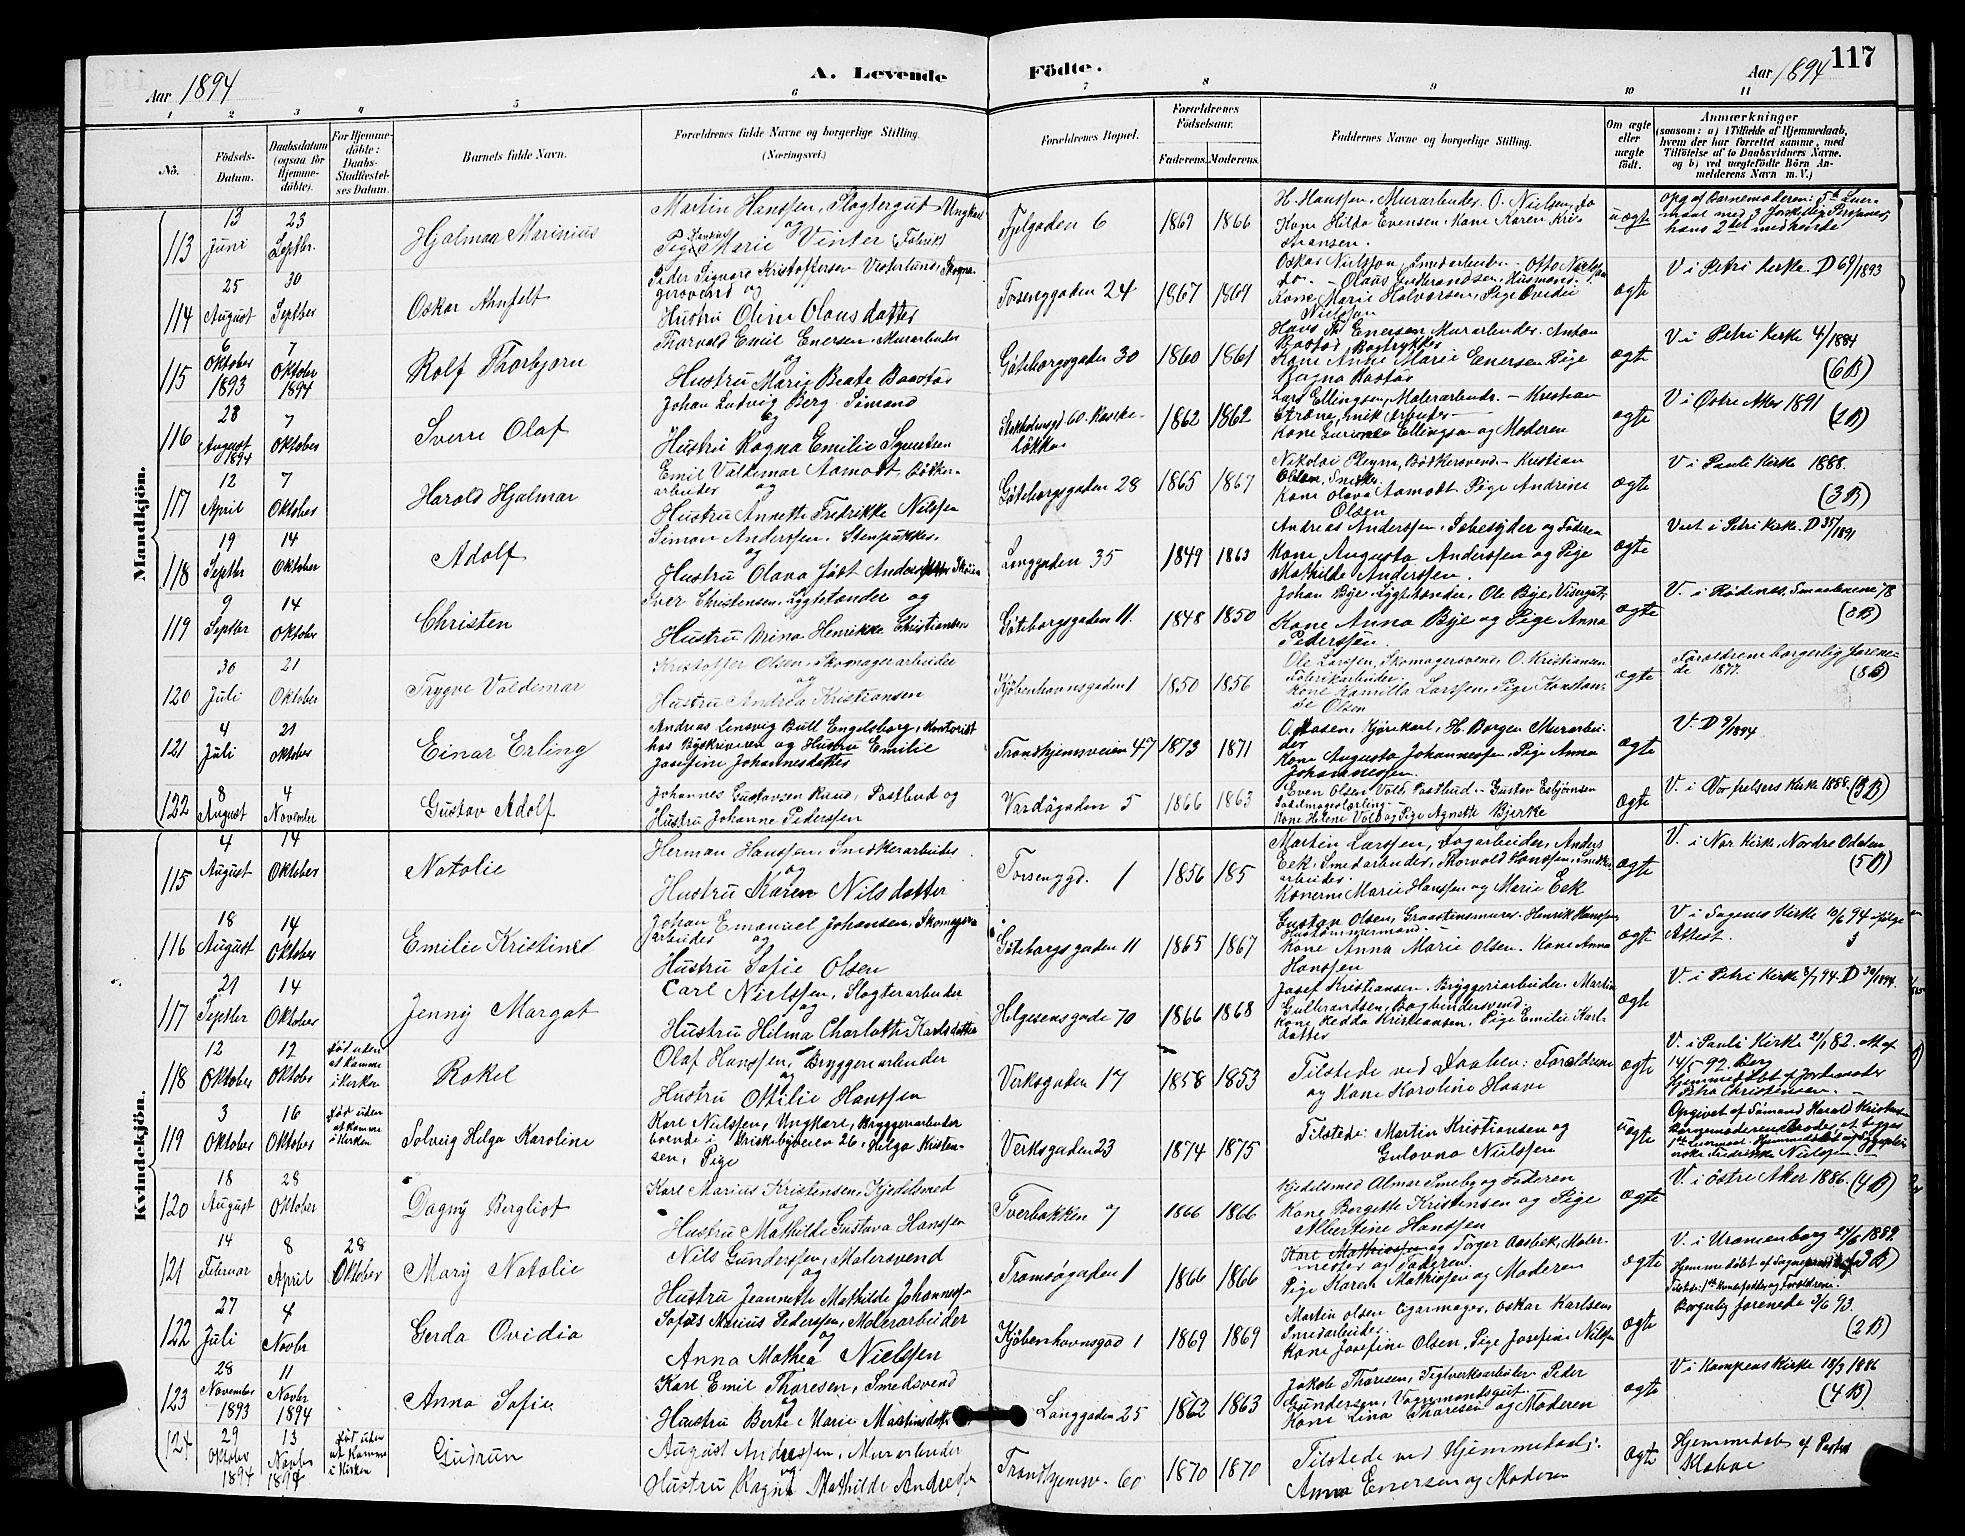 Aar 1894
A. Levende
Födte.
Aar 1894
117
1 2 3 4 5 6 7 8 9 10 11
No.
Födsels-
Datum.
Daabsdatum
(ogsaa for
Hjemme-
döbte).
For Hjemme-
döbte:
Daabs-
Stadfestel-
ses Datum.
Barnets fulde Navn.
Forældrenes fulde Navne og borgerlige Stilling.
(Næringsvei.)
Forældrenes Bopæl.
Forældrenes
Födselsaar.
Faderens. Moderens.
Faddernes Navne og borgerlige Stilling.
Om ægte
eller
uægte
födt.
Anmærkninger
(saasom: a) i Tilfælde af Hjemmedaab,
hvem der har forrettet samme, med
Tilföielse af to Daabsvidners Navne.
og b) ved uægtefödte Börn An-
melderens Navn m. V.)
Mandkjön.
113
13
Juni
23
Septbr.
Hjalmar Marinius
Martin Hanssen, Slagtergut Ungkarl
og
Pige Marie Vinter (Fabrik)
Fjelgaden 6
1869 1866
H. Hanssen, Murarbeider. O. Nielsen, do
Kone Hilda Evensen, Kone Karen Kris
tiansen.
uægte
opg. af Barnemoderen: 5te Leier-
maal med 3 forskellige Personer,
hans 2det med heirde
114
25
August
30
Septber
Oskar Ahnfelt
Peder Sigvard Kristoffersen Vesterlund,
og
Hustru Oline Olausdatter
Torsenggaden 24
1867 1869
Oskar Nielsson, Smedarbeider - Otto Nielsson
do. - Olaus Gulbrandsen, Husmand.
Kone Marie Halvorsen, Pige Ovidie
Nielsson
ægte
V i Petri Kirke. D 69/1893
115
6
Oktober
1893
7
Oktober
1894
Rolf Thorbjorn
Thorvald Emil Enersen, Murarbeider
og
Hustru Marie Beate Baastad
Göteborgsgaden 30
1860 1861
Hans Th. Enersen, Murarbeider. Anton
Baastad Bogtrykker
Kone Anne Marie Enersen Pige
Ragna Bastad
ægte
V i Petri Kirke 4/1884
(6 B)
116
28
August
1894
7
Oktober
Sverre Olaf
Johan Ludvig Berg. Sömand
og
Hustru Ragna Emilie Syvertsen
Stockholmsgd 60.
lökken
1862 1862
Lars Ellingsen, Malerarbeider. - Kristian
Kone Ellingsen og Moderen
ægte
V i Østre Aker 1891
(2 B)
117
12
April
7
Oktober
Harald Hjalmar
Emil Valdemar Aamodt, Bödker-
arbeider og
Hustru Annette Fredrikke Nilssen
Göteborgsgaden 28
1865 1867
Nikolai Pleym, Bödkersvend - Kristian
Olsen, Snekker.
Kone Olava Aamodt Pige Andrine
Olsen
ægte
V i Pauli Kirke 1888.
(3 B)
118
19
Septbr
14
Oktober
Adolf
Simon Anderssen. Stenpukker
og
Hustru Olava födt
Langgaden 35
1849 1863
Andreas Anderssen, Sæbesyder og Faderen
Kone Augusta Anderssen og Pige
Mathilde Anderssen.
ægte
Viet i Petri Kirke. D 35/1891
119
9
Septbr
14
Oktober
Christen
Iver Christensen, Lygtetænder og
Hustru Mina Henrikke Christiansen
Göteborgsgaden 11.
1848 1850
Johan Bye, Lygtetænder, Ole Bye, Visergut,
Kone Anna Bye og Pige Anna
Pederssen.
ægte
V. i Rødenes, Smaalenene
(2 B)
120
30
Juli
21
Oktober
Trygve Valdemar
Kristoffer Olsen, Skomagerarbeider
og
Hustru Andrea Kristiansen
Kjöbenhavnsgaden 1
1850 1856
Ole Larssen, Skomagersvend, O. Kristiansen
Fabrikarbeider.
Kone Kamilla Larssen, Pige Konstan-
se Olsen
ægte
Forældrene borgerlig forene-
de 1877.
(8 B)
121
4
Juli
21
Oktober
Einar Erling
Andreas Linsvig Bull Engelsborg, Kontorist
hos Byskriveren og Hustru Emilie
Josefine Johannesdatter
Trondhjemsveien 47
1873 1871
O. Aasen, Kjörekarl, H. Borgen Murarbei-
der
Kone Augusta Johannessen, Pige Anna
Johannessen.
ægte
V. D 9/1894
122
8
August
4
November
Gustav Adolf
Johannes Gustavsen Ruud, Postbud og
Hustru Johanne Pederssen
Vardögaden 5
1866 1863
Even Olsen Vold, Postbud - Gustav Esbjörnsen
Sadelmagerlærling -
Kone Helene Vold og Pige Agnethe Bjerke
ægte
V. i Vor Frelsers Kirke 1888. (3 B)
Kvindekjön.
115
4
August
14
Oktober
Natalie
Herman Hanssen, Snedkerarbeider
og
Hustru Maren Nilsdatter
Torsenggd. 1
1856 185
Martin Larssen, Dagarbeider, Anders
Eek, Smedarbeider, Thorvald Hanssen, Snekker-
arbeider.
Konerne Marie Hanssen og Marie Eek
ægte
V. i Nor Kirke, Nordre Odalen
(5 B)
116
18
August
14
Oktober
Emilie Kristine
Johan Emanuel Johansen, Skomager
arbeider og
Hustru Sofie Olsen
Göteborgsgaden 11
1865 1867
Gustav Olsen, Graastensmurer. Henrik Hanssen,
Hustömmermand. -
Kone Anna Marie Olsen. Kone Anna
Hanssen
ægte
V i Sagenes Kirke 10/6 94 ifølge
Attest.
117
21
Septbr
14
Oktober
Jenny Margot
Carl Nielssen, Slagterarbeider
og
Hustru Hilma Charlotte Karlsdatter
Helgesensgade 70
1866 1868
Josef Kristiansen, Bryggeriarbeider. Martin
Gulbrandsen, Bogbindersvend.
Kone Hedda Kristiansen, Pige Emilie Karls-
datter
ægte
V. i Petri Kirke 8/7 94. D 30/1894.
118
12
Oktober
12
Oktober
död uden
at komme
i Kirken
Rakel
Olaf Hanssen, Bryggeriarbeider
og
Hustru Ottilie Hanssen
Verksgaden 17
1858 1853
Tilstede ved Daaben: Forældrene
og Kone Karoline Haave
ægte
V. i Pauli Kirke 21/1 82.
14/5-92. Berg
Hjemmedöbt af Jordemoder
Petra Christensen.
119
3
Oktober
16
Oktober
död uden
at komme
i Kirken
Solveig Helga Karoline
Karl Nielssen, Ungkarl, Bryggeriarbeider
boende i Griskebyveien 26, Helga Kristian-
sen, Pige
Verksgaden 23
1874 1875
Tilstede: Martin Kristiansen og
Gulovna Nielssen
uægte
Opgivet af Sömand Harald Kristiansen
Barnemoderens Broder, at begges
1ste Leiermaal. Hjemmedöbt af
Fredrikke Nielssen
120
18
August
28
Oktober
Dagny Bergliot
Karl Marius Kristensen, Kjedelsmed
og
Hustru Mathilde Gustava Hanssen
Tverbakken 7
1866 1866
Kjedelsmed Almar Smeby og Faderen
Kone Borgette Kristensen og Pige
Albertine Hanssen
ægte
V. i Østre Aker 1886. (4 B)
121
14
Februar
8
April
28
Oktober
Mary Natalie
Nils Gunderssen, Malersvend
og
Hustru Jeanette Mathilde Johannessen
Tromsögaden 1
1866 1866
Karl Mathiassen og Torger Aasbek, Maler-
mester og Faderen.
Pige Karen Mathissen og Moderen
ægte
V. i Uranienborg 24/6 1889.
Hjemmedöbt af Sogneprest (3 B)
122
27
Juli
4
Novbr
Gerda Ovidia
Sofus Marius Pederssen, Malerarbeider
og
Anna Mathea Nielssen
Kjöbenhavnsgad 1
1869 1869
Martin Olsen Cigarmager, Oskar Karlsen
Smedarbeider.
Kone Josefine Olsen, Pige Josefine Nilssen
ægte
Borgerlig forenede 3/6 93.
(2 B)
123
28
November
1893
11
Novbr
1894
Anna Sofie
Karl Emil Thoresen, Smedsvend
og
Hustru Berte Marie Martinsdatter
Langgaden 25
1862 1863
Jakob Thoresen, Teglverksarbeider Peder
Gundersen, Vognmandsgut.
Kone Lina Thoresen og Moderen
ægte
V i Kampens Kirke 18/9 1886
(4 B)
124
29
Oktober
1894
13
Novbr
1894
död uden
at komme
i Kirken
Gudrun
August Anderssen, Murarbeider
og
Hustru Ragna Mathilde Anderssen
Trondhjemsv. 60
1870 1870
Tilstede ved Hjemmedaab:
Anna Enersen og Moderen
ægte
Hjemmedöbt af Pastor
Klaboe